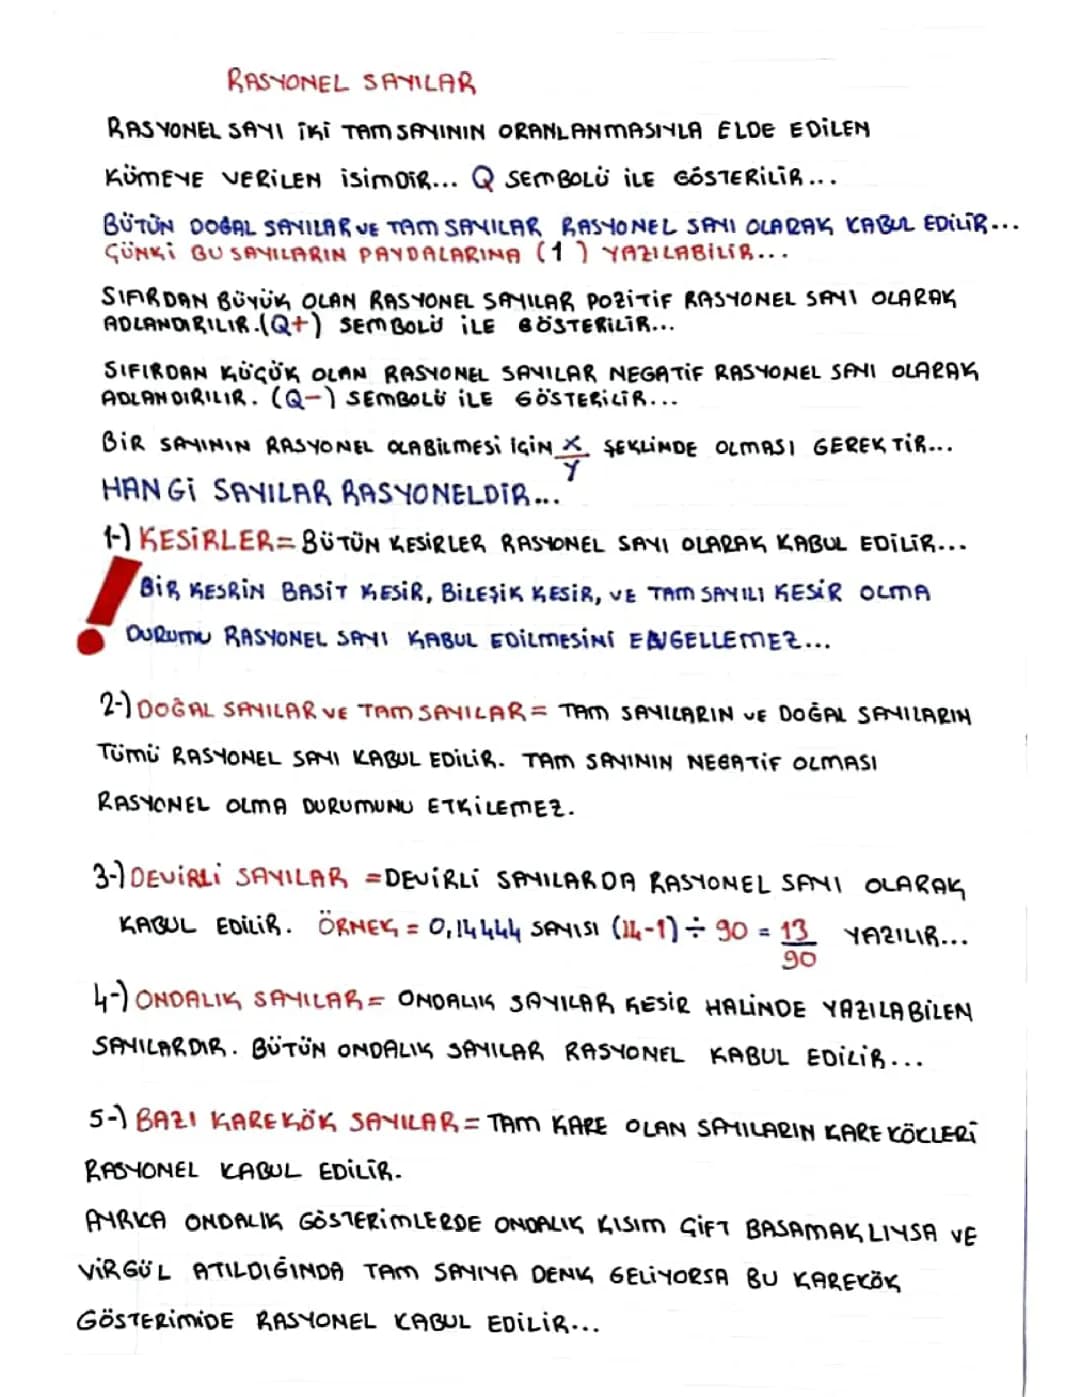 RASYONEL SAYILAR
RASYONEL SAYI İKİ TAM SAYININ ORANLANMASIYLA ELDE EDİLEN
KÜMEYE VERİLEN İSİMDİR... Q SEMBOLÜ İLE GÖSTERİLİR...
BÜTÜN DOĞAL SAYILAR VE TAM SAYILAR RASYONEL SAYI OLARAK KABUL EDİLİR...
ÇÜNKİ BU SAYILARIN PAYDALARINA (1) YAZILABİLİR...
SIFIRDAN BÜYÜK OLAN RASYONEL SAYILAR POZİTİF RASYONEL SAYI OLARAK
ADLANDIRILIR.(Q+) SEMBOLÜ İLE GÖSTERİLİR...
SIFIRDAN KÜÇÜK OLAN RASYONEL SAYILAR NEGATİF RASYONEL SAYI OLARAK
ADLANDIRILIR. (Q-) SEMBOLÜ İLE GÖSTERİLİR...
BİR SAYININ RASYONEL OLABİLMESİ İÇİN X/Y ŞEKLİNDE OLMASI GEREKTİR...
HANGİ SAYILAR RASYONELDİR...
1-) KESİRLER= BÜTÜN KESİRLER RASYONEL SAYI OLARAK KABUL EDİLİR...
! BİR KESRİN BASİT KESİR, BİLEŞİK KESİR, VE TAM SAYILI KESİR OLMA
DURUMU RASYONEL SAYI KABUL EDİLMESİNİ ENGELLEMEZ...
2-) DOĞAL SAYILAR VE TAM SAYILAR= TAM SAYILARIN VE DOĞAL SAYILARIN
TÜMÜ RASYONEL SAYI KABUL EDİLİR. TAM SAYININ NEGATİF OLMASI
RASYONEL OLMA DURUMUNU ETKİLEMEZ.
3-) DEVİRLİ SAYILAR =DEVİRLİ SAYILARDA RASYONEL SAYI OLARAK
KABUL EDİLİR. ÖRNEK = 0,14444 SAYISI (14-1) ÷ 90 = 13/90 YAZILIR...
4-) ONDALIK SAYILAR= ONDALIK SAYILAR KESİR HALİNDE YAZILABİLEN
SAYILARDIR. BÜTÜN ONDALIK SAYILAR RASYONEL KABUL EDİLİR...
5-) BAZI KAREKÖK SAYILAR= TAM KARE OLAN SAYILARIN KARE KÖKLERİ
RASYONEL KABUL EDİLİR.
AYRICA ONDALIK GÖSTERİMLERDE ONDALIK KISIM ÇİFT BASAMAKLIYSA VE
VİRGÜL ATILDIĞINDA TAM SAYIYA DENK GELİYORSA BU KAREKÖK
GÖSTERİMİDE RASYONEL KABUL EDİLİR...